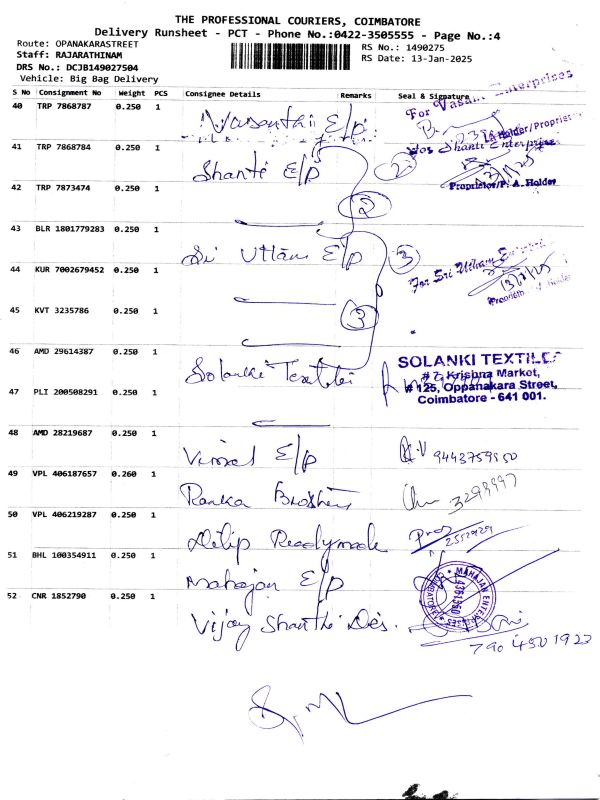 THE PROFESSIONAL COURIERS, COIMBATORE
Delivery Runsheet - PCT - Phone No.:0422-3505555 - Page No.:4
Route: OPANAKARASTREET
Staff: RAJARATHINAM
DRS No.: DCJB149027504
Vehicle: Big Bag Delivery
RS No.: 1490275
RS Date: 13-Jan-2025
S No Consignment No Weight PCS Consignee Details Remarks Seal & Signature
40 TRP 7868787 0.250 1 Vasanthi E/p For Vasan Enterprises
41 TRP 7868784 0.250 1 Shanti E/p For Shanti Enterprises
Proprietor/P. A. Holder
42 TRP 7873474 0.250 1
2
43 BLR 1801779283 0.250 1 Sri Uttam E/p 3 For Sri Uttam
44 KUR 7002679452 0.250 1
45 KVT 3235786 0.250 1
3
46 AMD 29614387 0.250 1 Solanki Textiles SOLANKI TEXTILES
# 7, Krishna Market,
# 125, Oppanakara Street,
Coimbatore - 641 001.
47 PLI 200508291 0.250 1
48 AMD 28219687 0.250 1 Vimal E/p 9443759550
49 VPL 406187657 0.260 1 Ranka Brothers
50 VPL 406219287 0.250 1 Dilip Readymade
51 BHL 100354911 0.250 1 Mahajan E/p MAHAJAN ENTERPRISES
52 CNR 1852790 0.250 1 Vijay Shanthi Des.
790 4501923